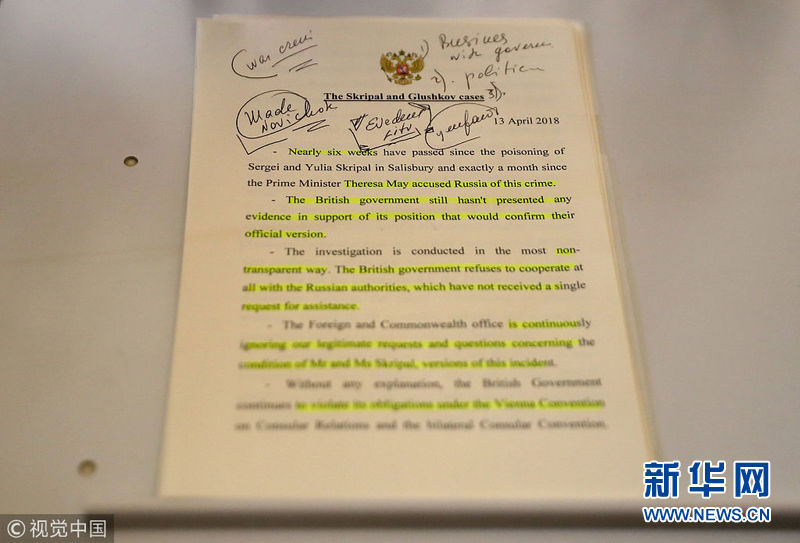 war
1) Busines
with govern
2). politicn
The Skripal and Glushkov cases 3).
Made
Novichok
Evedent
13 April 2018
- Nearly six weeks have passed since the poisoning of
Sergei and Yulia Skripal in Salisbury and exactly a month since
the Prime Minister Theresa May accused Russia of this crime.
- The British government still hasn't presented any
evidence in support of its position that would confirm their
official version.
- The investigation is conducted in the most non-
transparent way. The British government refuses to cooperate at
all with the Russian authorities, which have not received a single
request for assistance.
- The Foreign and Commonwealth office is continuously
ignoring our legitimate requests and questions concerning the
condition of Mr and Ms Skripal, versions of this incident.
- Without any explanation, the British Government
continues to violate its obligations under the Vienna Convention
on Consular Relations and the bilateral Consular Convention,
新华网
WWW.NEWS.CN
©视觉中国